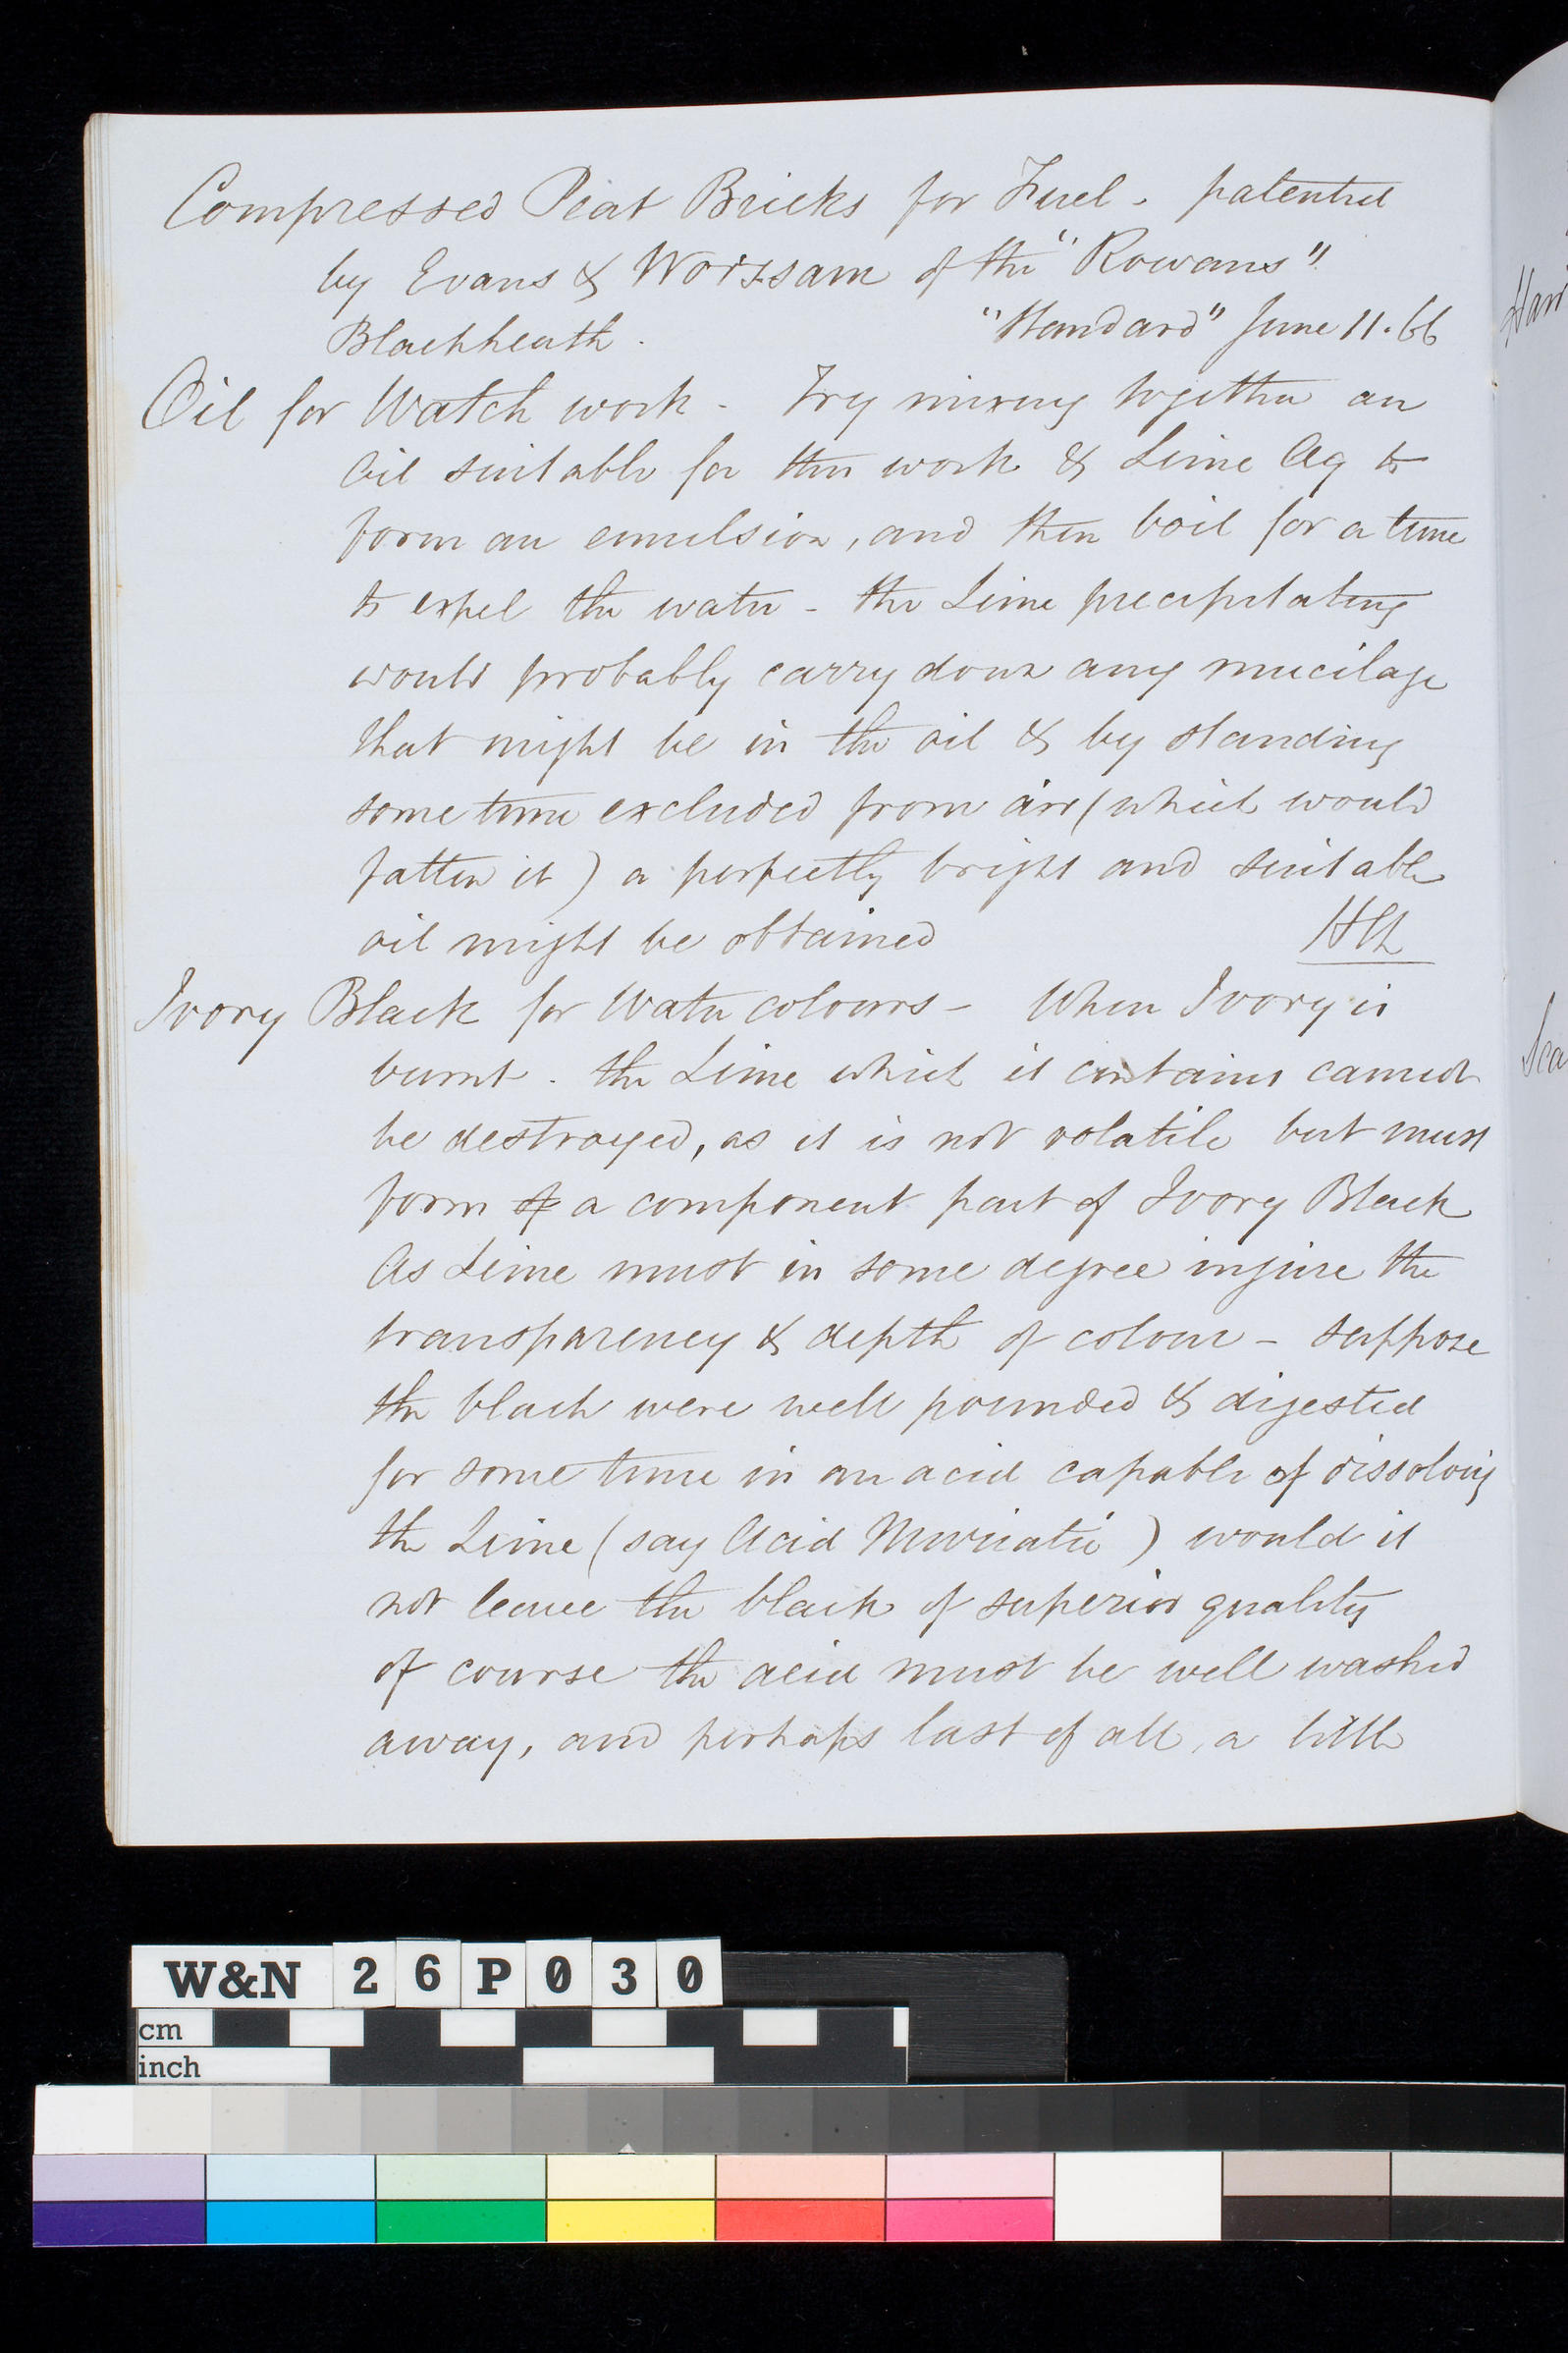 Compressed Peat Bricks for Fuel. patented
by Evans & Worssam of the "Rowans"
Blackheath. "Standard" June 11. 66
Oil for Watch work - Try mixing together an
Oil suitable for this work & Lime Aq to
form an emulsion, and then boil for a time
to expel the water - the Lime precipitating
would probably carry down any mucilage
that might be in the oil & by standing
some time excluded from air (which would
fatten it) a perfectly bright and suitable
oil might be obtained
Ivory Black for Water colours - When Ivory is
burnt. the Lime which it contains cannot
be destroyed, as it is not volatile but must
form of a component part of Ivory Black
As Lime must in some degree injure the
transparency & depth of colour - suppose
the black were well pounded & digested
for some time in an acid capable of dissolving
the Lime (say Acid Muriatic) would it
not leave the black of superior quality
of course the acid must be well washed
away, and perhaps last of all, a little
Harr
Sca
W&N 26P030
cm
inch